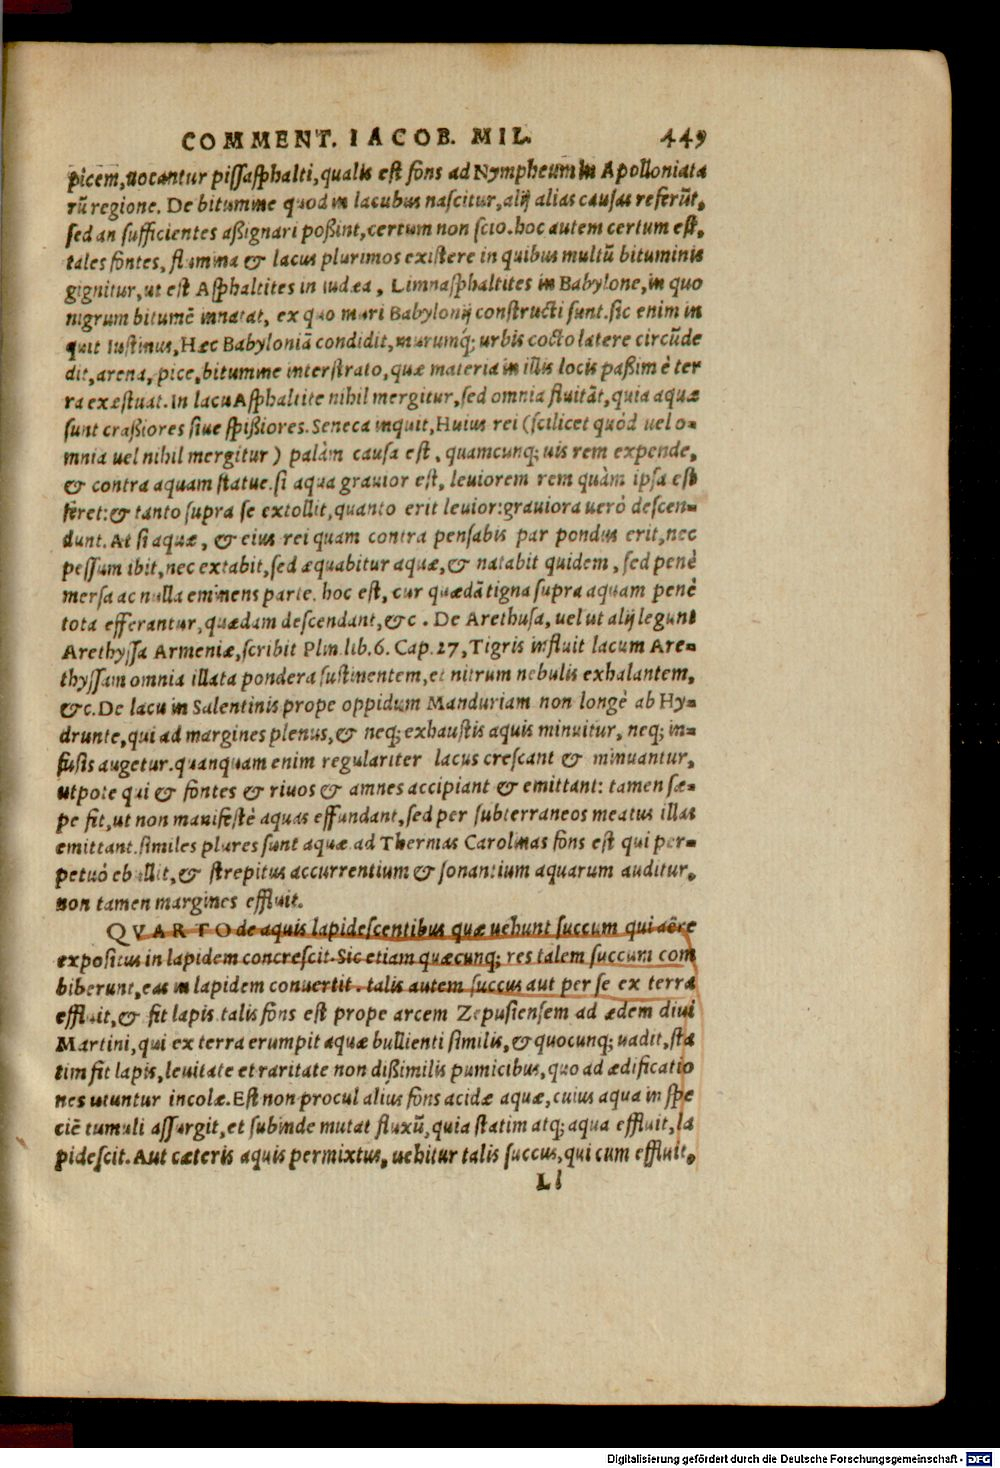 COMMENT. IACOB. MIL. 449
picem, uocantur pissasphalti, qualis est fons ad Nympheum in Apolloniata
rū regione. De bitumine quod in lacubus nascitur, alij alias causas referūt,
sed an sufficientes aßignari poßint, certum non scio. hoc autem certum est,
tales fontes, flumina & lacus plurimos existere in quibus multū bituminis
gignitur, ut est Asphaltites in iudæa, Limnasphaltites in Babylone, in quo
nigrum bitumē innatat, ex quo muri Babylonij constructi sunt. sic enim in
quit Iustinus, Hæc Babyloniā condidit, murumq́; urbis cocto latere circūde
dit, arena, pice, bitumine interstrato, quæ materia in illis locis paßim è ter
ra exæstuat. In lacu Asphaltite nihil mergitur, sed omnia fluitāt, quia aquæ
sunt craßiores siue spißiores. Seneca inquit, Huius rei (scilicet quòd uel o-
mnia uel nihil mergitur) palàm causa est, quamcunq; uis rem expende,
& contra aquam statue. si aqua grauior est, leuiorem rem quàm ipsa est
feret: & tanto supra se extollit, quanto erit leuior: grauiora uerò descen-
dunt. At si aquæ, & eius rei quam contra pensabis par pondus erit, nec
pessum ibit, nec extabit, sed æquabitur aquæ, & natabit quidem, sed penè
mersa ac nulla eminens parte. hoc est, cur quædā tigna supra aquam penè
tota efferantur, quædam descendant, &c. De Arethusa, uel ut alij legunt
Arethyssa Armeniæ, scribit Plin. lib. 6. Cap. 27, Tigris influit lacum Are-
thyssam omnia illata pondera sustinentem, et nitrum nebulis exhalantem,
&c. De lacu in Salentinis prope oppidum Manduriam non longè ab Hy-
drunte, qui ad margines plenus, & neq; exhaustis aquis minuitur, neq; in-
fusis augetur. quanquam enim regulariter lacus crescant & minuantur,
utpote qui & fontes & riuos & amnes accipiant & emittant: tamen sæ-
pe fit, ut non manifestè aquas effundant, sed per subterraneos meatus illas
emittant. similes plures sunt aquæ. ad Thermas Carolinas fons est qui per-
petuò ebullit, & strepitus accurrentium & sonantium aquarum auditur,
non tamen margines effluit.
QVARTO de aquis lapidescentibus quæ uehunt succum qui aëre
expositus in lapidem concrescit. Sic etiam quæcunq; res talem succum com
biberunt, eas in lapidem conuertit. talis autem succus aut per se ex terra
effluit, & fit lapis. talis fons est prope arcem Zepusiensem ad ædem diui
Martini, qui ex terra erumpit aquæ bullienti similis, & quocunq; uadit, sta
tim fit lapis, leuitate et raritate non dißimilis pumicibus, quo ad ædificatio
nes utuntur incolæ. Est non procul alius fons acidæ aquæ, cuius aqua in spe
ciē tumuli assurgit, et subinde mutat fluxū, quia statim atq; aqua effluit, la
pidescit. Aut cæteris aquis permixtus, uehitur talis succus, qui cum effluit,
Ll
Digitalisierung gefördert durch die Deutsche Forschungsgemeinschaft - DFG